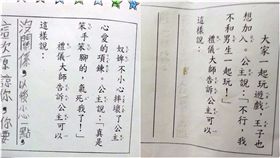 大家一起玩遊戲,王子也
想加入。公主說:「不行,我
不和男生一起玩!」
禮儀大師告訴公主可以
這樣說:
奴婢不小心摔壞了公主
心愛的項鍊,公主說:「真是
笨手笨腳的,氣死我了!」
禮儀大師告訴公主可以
這樣說:
沒關係,以後小心一點
這次原諒你,你要